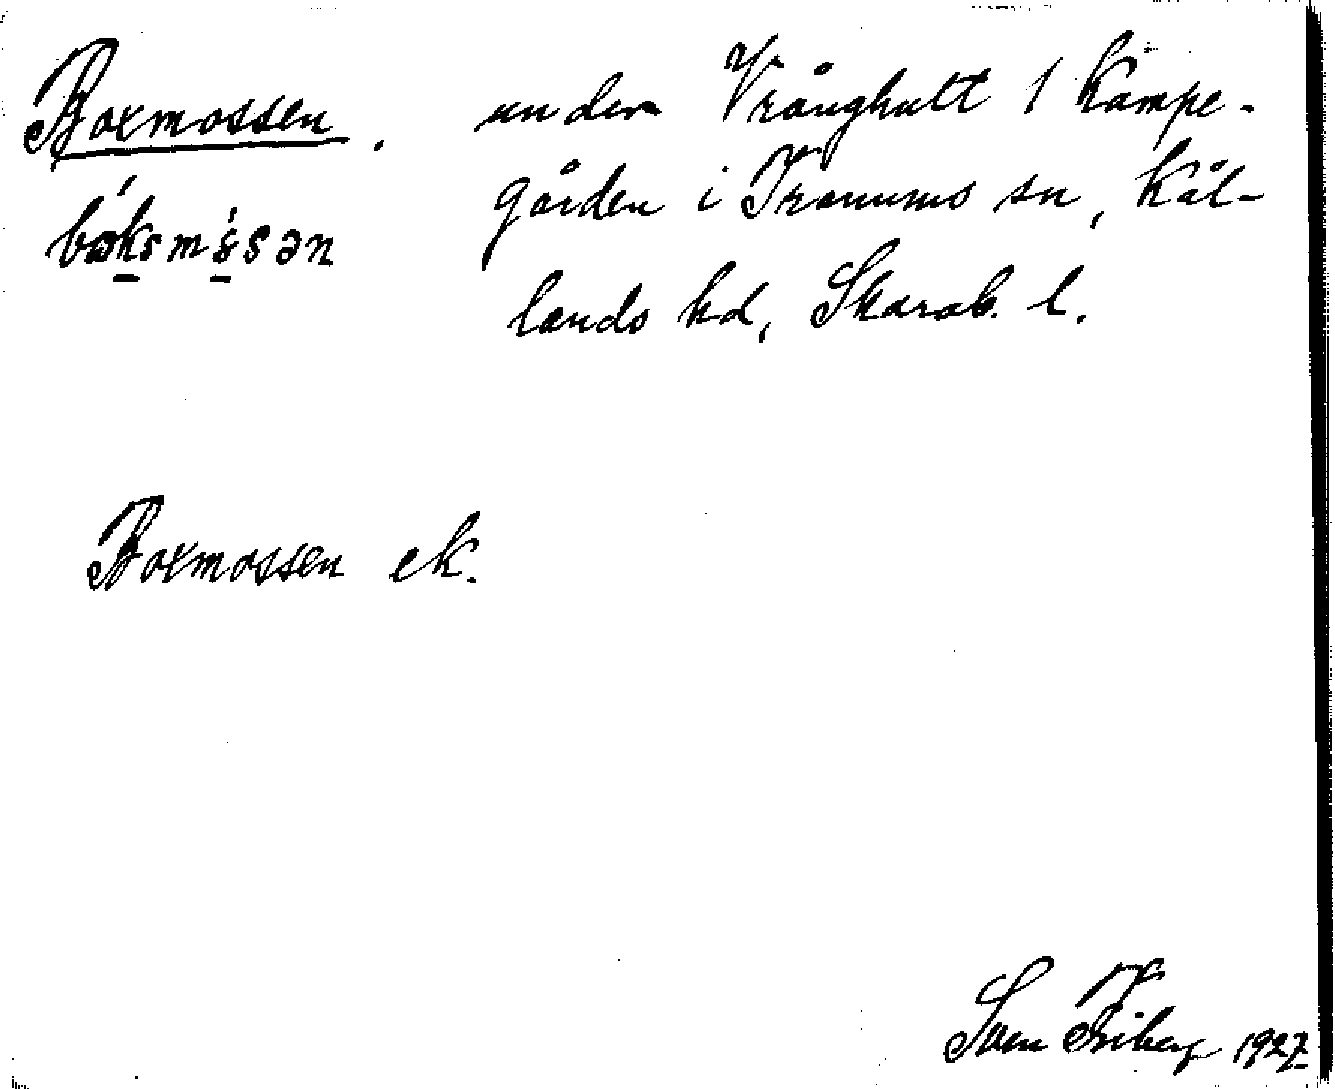 Boxmossen. under Vrånghult 1 Kämpe-
gården i Tranums sn, Kål-
lands hd, Skarab. l.
Boxmossen ek.
Sven Friberg 1927.